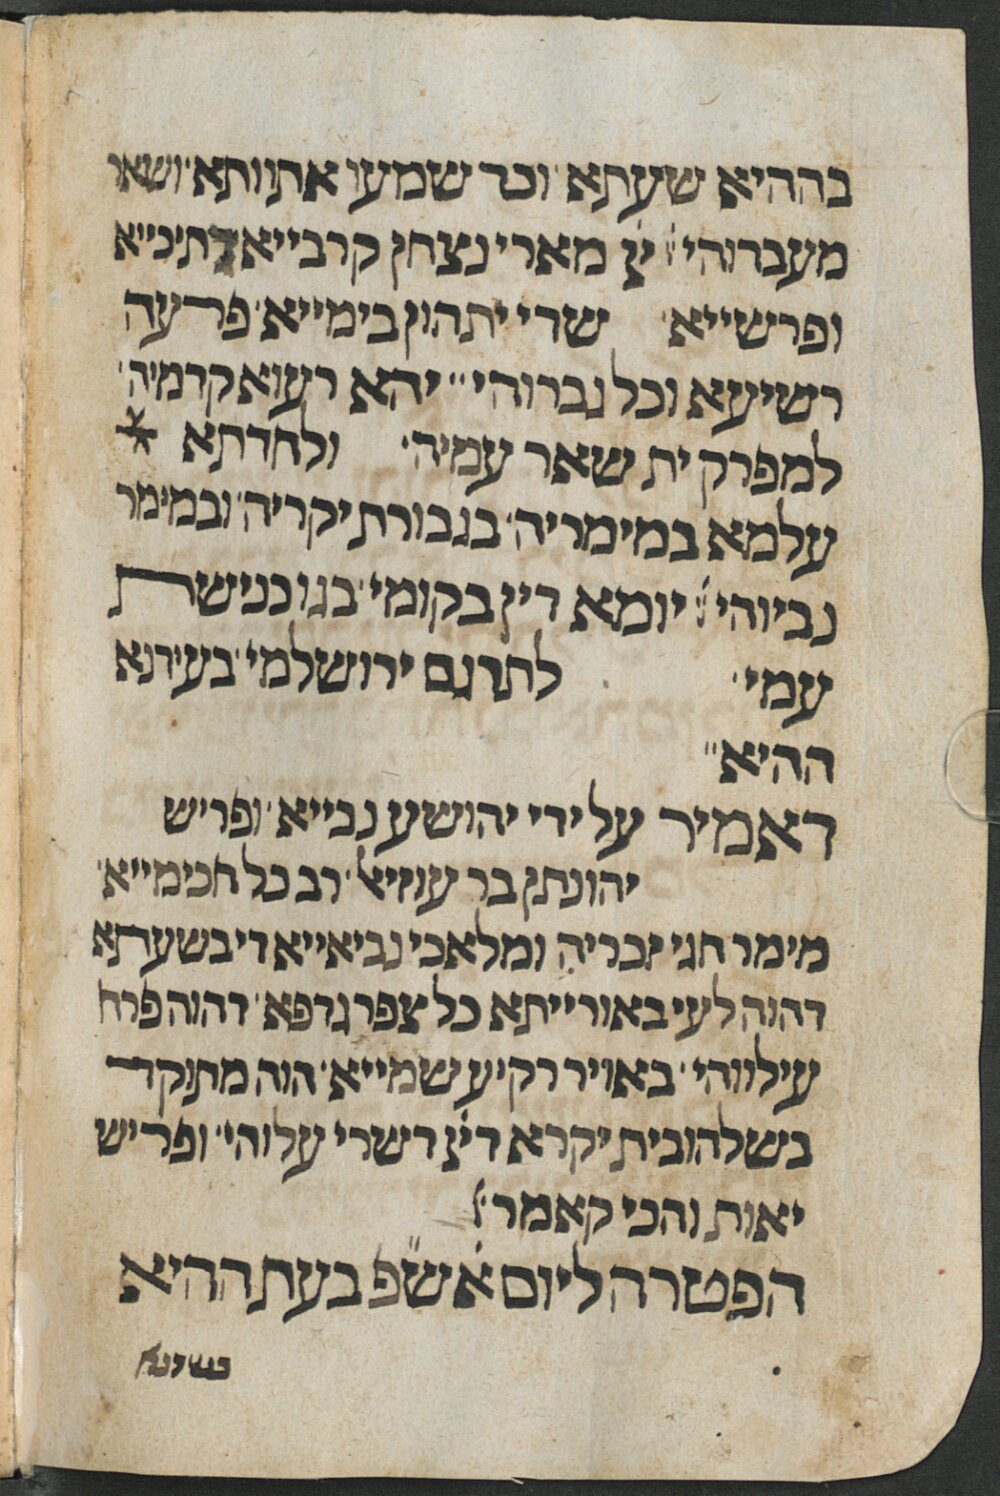 בההיא שעתא וכד שמעו אתוותא ושאר
מעברוהי יץ מארי נצחן קרבייא דתיכייא
ופרשייא שדי יתהון בימייא פרעה
רשיעא וכל גברוהי יהא רעוא קדמיה
למפרק ית שאר עמיה ולחדתא
עלמא במימריה בגבורת יקריה ובמימר
נביוהי יומא דין בקומי בגו כנישת
עמי לתרגם ירושלמי בעידנא
ההיא
דאמיר על ידי יהושע נבייא ופריש
יהונתן בר עוזיאל רב כל חכימייא
מימר חגי זכריה ומלאכי נביאייא די בשעתא
דהוה לעי באורייתא כל צפר גדפא דהוה פרח
עילווהי באויר רקיע שמייא הוה מתוקד
בשלהובית יקרא דיץ דשרי עלוהי ופריש
יאות והכי קאמר
הפטרה ליום אשפ בעת ההיא